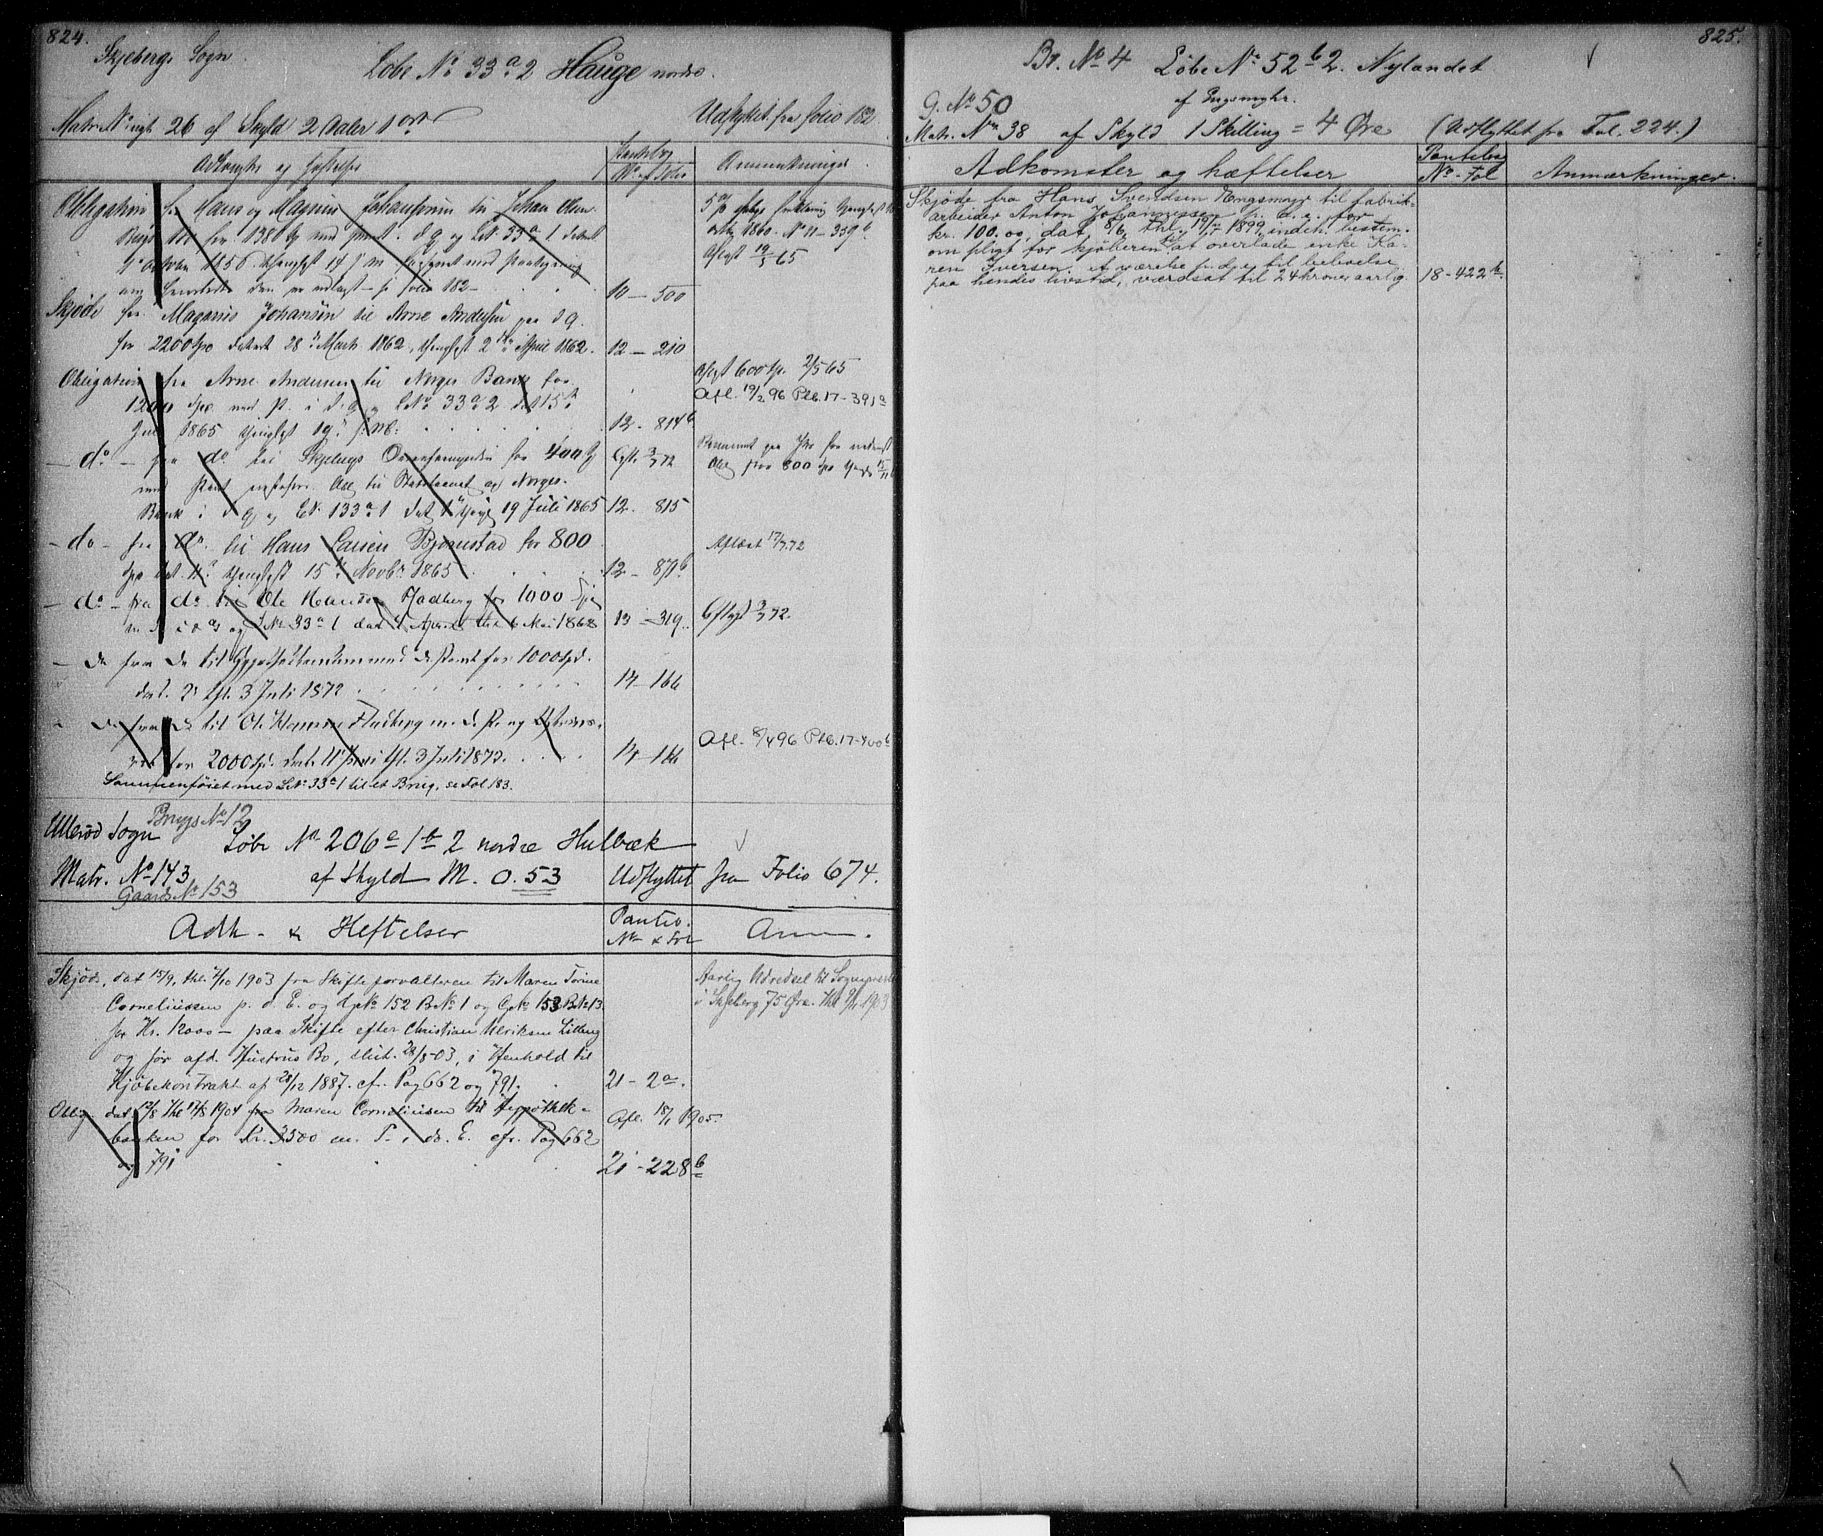 824.
Skjebergs Sogn.
Løbe No 33 a 2 Hauge nordre.
Matr. No ny 26 af Skyld 2 Daler 1 ort
Udflyttet fra folio 182
Adkomster og Heftelser
Pantebog
No og Folio
Anmærkninger
Obligation fra Hans og Magnus Johansønn til Johan Olsen
100 for 1380 med pant. i d. G. og L No 33 a 1 dateret
1856 thinglyst 14
den er udlagt fol 182
10 — 500
1860. No 11 — 359 b
Aflyst 12/5 65
Skjøde fra Maganus Johansøn til Arne Andersen paa d G.
for 2200 Spd dateret 28 Marts 1862, thinglyst 2 April 1862.
12 — 210
Obligation fra Arne Andersen til Norges Bank for
1200 Spd. med P. i d. G. og L No 33 a 2 dat 15
Juli 1865 thinglyst 19
12 - 814 b
Aflyst 600 Sp. 2/5 65
Afl. 19/2 96 Ptb. 17 - 391 a
— do — fra do til Skjebergs Overformynderi for 400
med Pant Obl til Statskassen og Norges
Bank i d G og L No 33 a 1 Dat & thingl 19 Juli 1865
12 - 815
- do - fra do. til Hans Larsen Bjørnstad for 800
Spd dat. thinglyst 15 Novbr 1865
12 - 87
Aflæst 17/7.72
— do — fra do til Ole Hansen Hadberg for 1000 Spd
m P i d G og L No 33 a 1 dat April thl 6 Mai 1868
13 — 319
- do fra do til Hypothekbanken med do Pant for 1000 Spd.
dat. 2 thl. 3 Juli 1872
14 - 166
- do fra do til Ole Hansen Hadberg m. d. P. og
for 2000 Spd. dat. 11 Juni thl. 3 Juli 1872.
14 - 166
Afl. 8/4 96 Ptb. 17-400 b
Sammenføiet med L No 33 a 1 til et Brug, se Fol 183.
Ullerød Sogn
Brugs No 12
Løbe No 206 a 1 b 2 nordre Hulbæk
Matr. No 143
Gaards No 153
af Skyld M. 0.53
Udflyttet fra Folio 674.
Adk - & Heftelser
Panteb.
No & Fol
Anm.
Skjøde, dat 15/9, thl. 2/10 1903 fra Skifteforvalteren til Maren Torine
Corneliussen p. d. E. og G No 152 B No 1 og G No 153 B No 13
for Kr. 12000 — paa Skifte efter Christian Ulriksen Lilleng
og før afd. Hustrus Bo, slut. 28/8-03, i Henhold til
Kjøbekontrakt af 28/12 1887. cfr. Pag 662 og 791.
21 - 2 a.
Aarlig Udredsel til Sognepræsten
i Skjeberg 75 Øre. Thl 2/10 1903
Oblig. dat 12/8 Thl 17/8 1904 fra Maren Corneliussen til Hypothek-
banken for Kr. 3500 m. P. i do. E. cfr. Pag 662
og 791
21 - 228 b
Afl. 18/1 1905.
825.
Br. No 4 Løbe No 52 b 2. Nylandet
af Engsmyhr.
G. No 50
Matr. No 38 af Skyld 1 Skilling = 4 Øre (Udflyttet fra Fol. 224.)
Adkomster og hæftelser
Pantebog
No - Fol
Anmærkninger.
Skjøde fra Hans Svendsen Engsmyr til fabrik-
arbeider Anton Johannessen p. d. e. for
kr. 100.00, dat. 8/6, thl. 19/7 1899, indeh. bestem.
om pligt for skjøtéren at overlade enke Ka-
ren Iversen et værelse
paa hendes livstid, værdsat til 24 kroner aarlig
18-422 b.